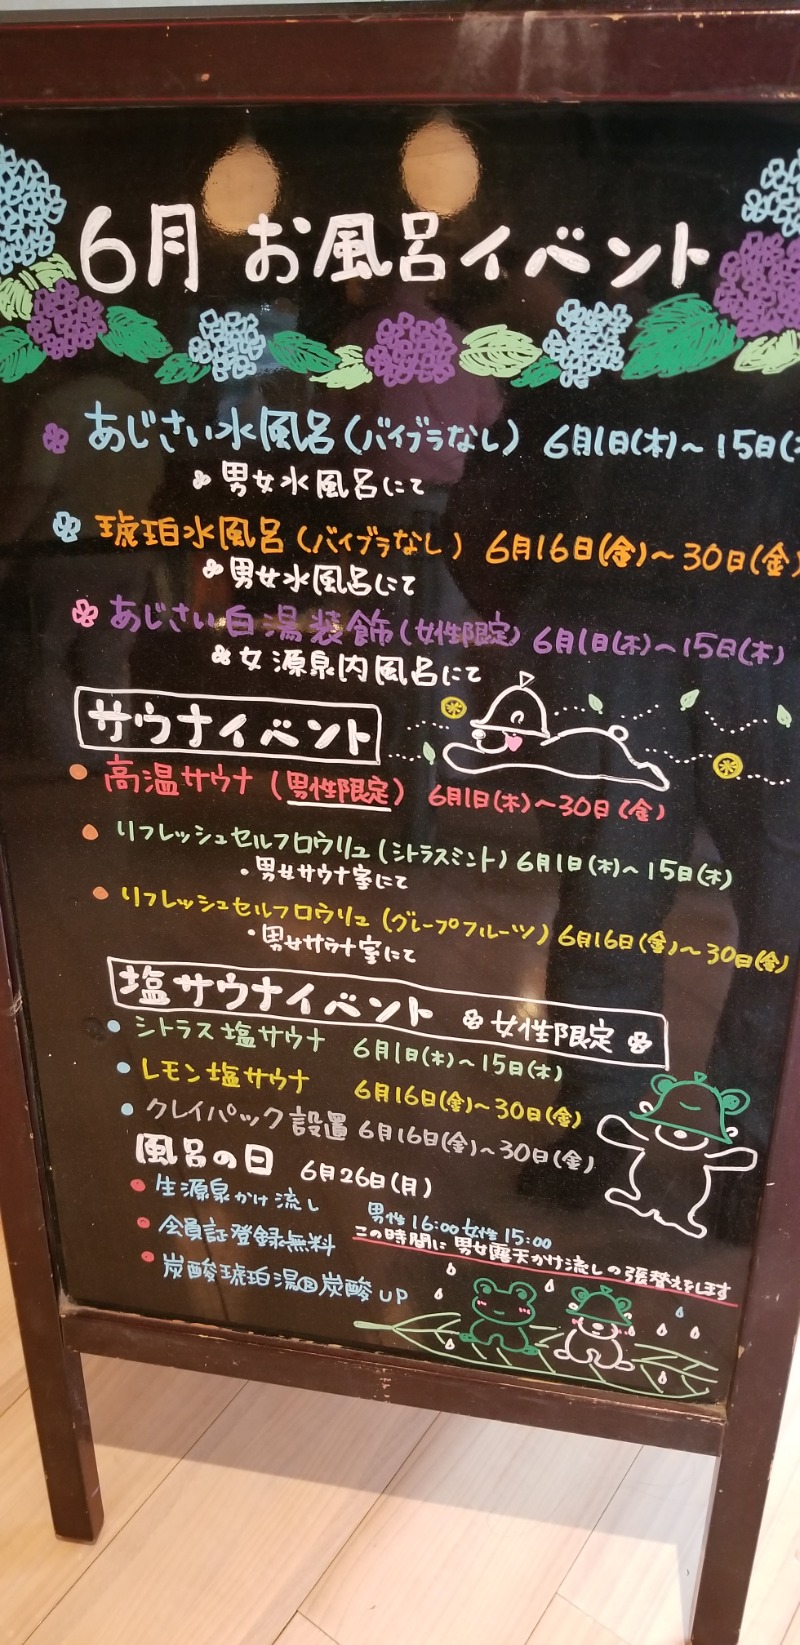 6月 お風呂イベント
あじさい水風呂(バイブラなし) 6月1日(木)~15日(
男女水風呂にて
琥珀水風呂(バイブラなし) 6月16日(金)~30日(金)
男女水風呂にて
あじさい白湯装飾(女性限定) 6月1日(木)~15日(木)
女源泉内風呂にて
サウナイベント
高温サウナ(男性限定) 6月1日(木)~30日(金)
リフレッシュセルフロウリュ(シトラスミント) 6月1日(木)~15日(木)
・男女サウナ室にて
リフレッシュセルフロウリュ(グレープフルーツ) 6月16日(金)~30日(金)
・男女サウナ室にて
塩サウナイベント 女性限定
シトラス塩サウナ 6月1日(木)~15日(木)
レモン塩サウナ 6月16日(金)~30日(金)
クレイパック設置 6月16日(金)~30日(金)
風呂の日 6月26日(月)
生源泉かけ流し 男性16:00女性15:00
この時間に男女露天かけ流しの張替えをします
会員証登録無料
炭酸琥珀湯 炭酸UP